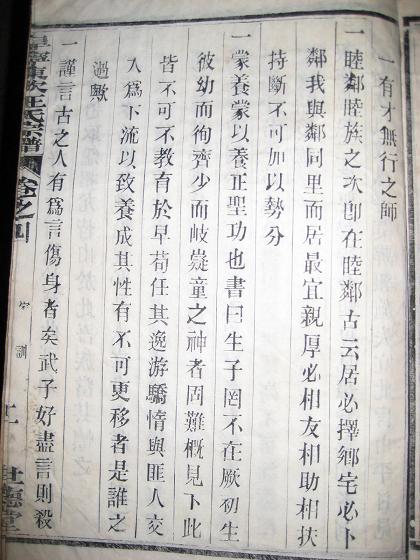 一有才無行之師
一睦鄰睦族之次卽在睦鄰古云居必擇鄉宅必卜
鄰我與鄰同里而居最宜親厚必相友相助相扶
持斷不可加以勢分
一蒙養蒙以養正聖功也書曰生子罔不在厥初生
彼幼而徇齊少而岐嶷童之神者固難概見下此
皆不可不教育於早苟任其逸游驕惰與匪人交
入爲下流以致養成其性有不可更移者是誰之
過歟
一謹言古之人有爲言傷身者矣武子好盡言則殺
汪氏宗譜 卷之四 家訓 世德堂